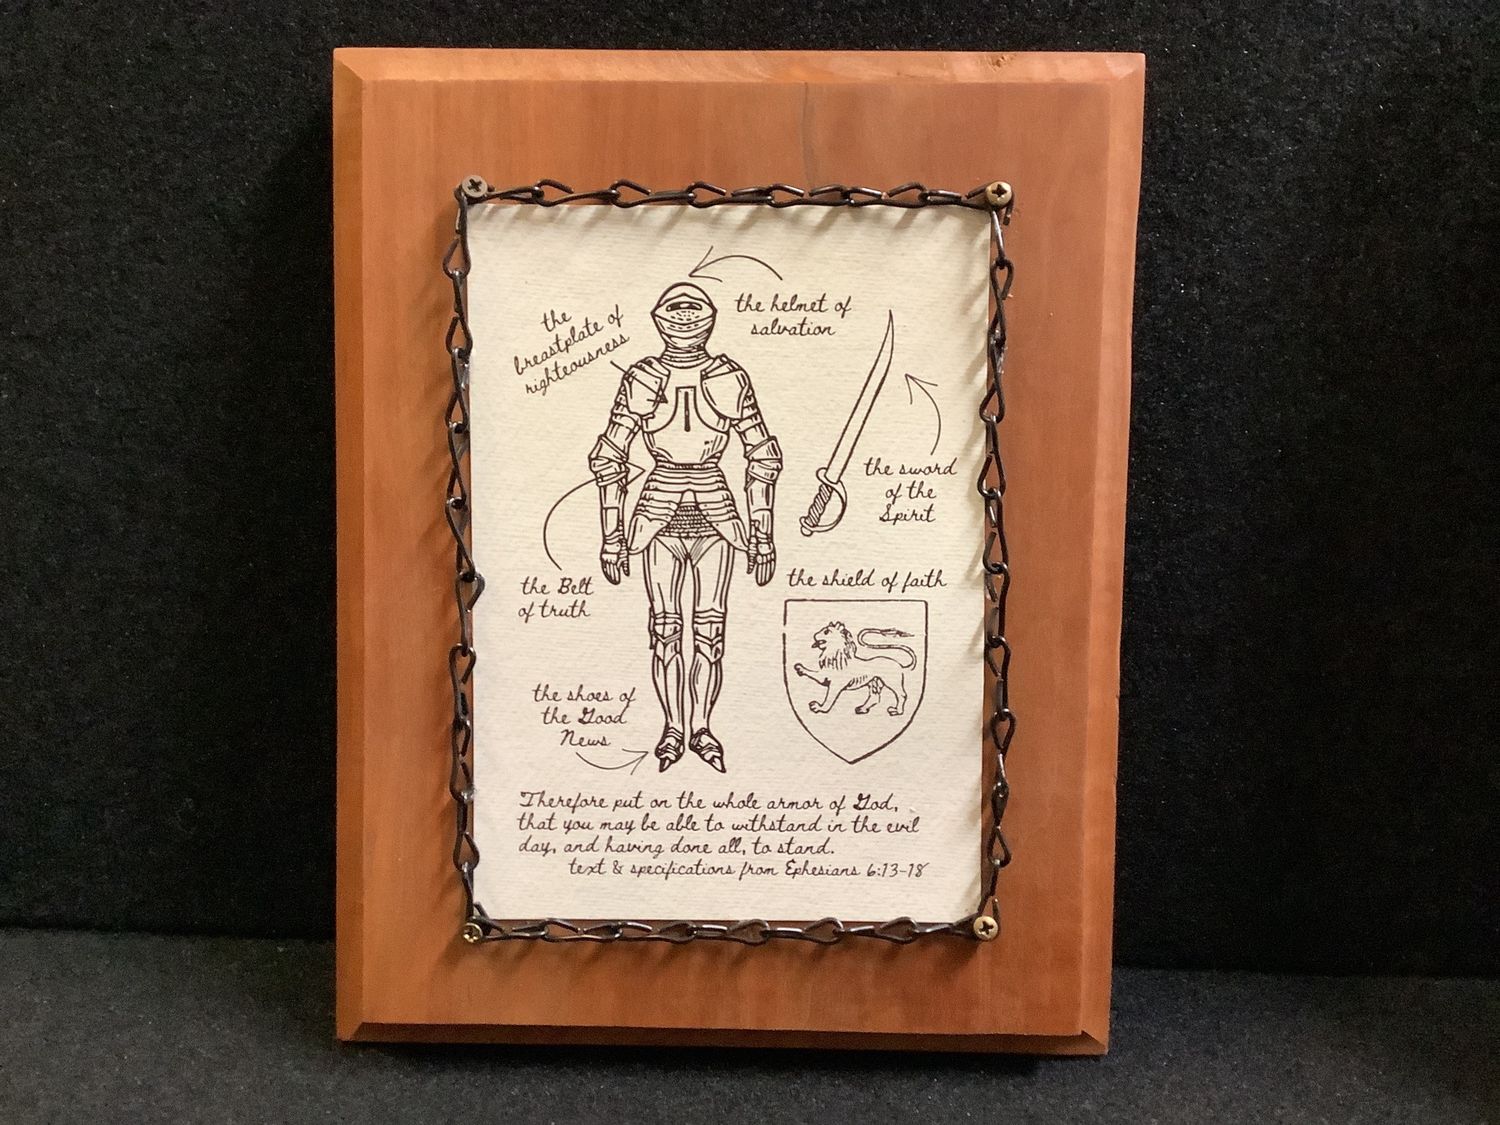 the helmet of
salvation
the
breastplate of
righteousness
the sword
of the
Spirit
the Belt
of truth
the shield of faith
the shoes of
the Good
News
Therefore put on the whole armor of God,
that you may be able to withstand in the evil
day, and having done all, to stand.
text & specifications from Ephesians 6:13-18